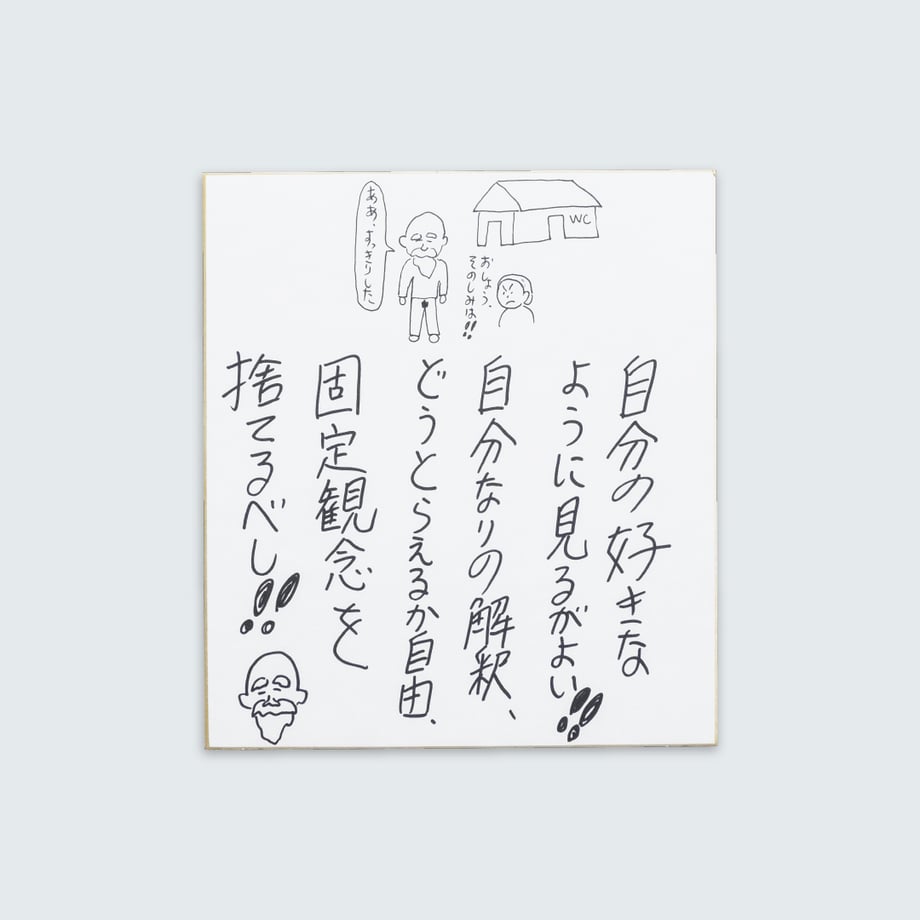 WC
おしょう、
そのしみは!!
ああ、すっきりした
自分の好きな
ように見るがよい!!
自分なりの解釈、
どうとらえるか自由、
固定観念を
捨てるべし!!